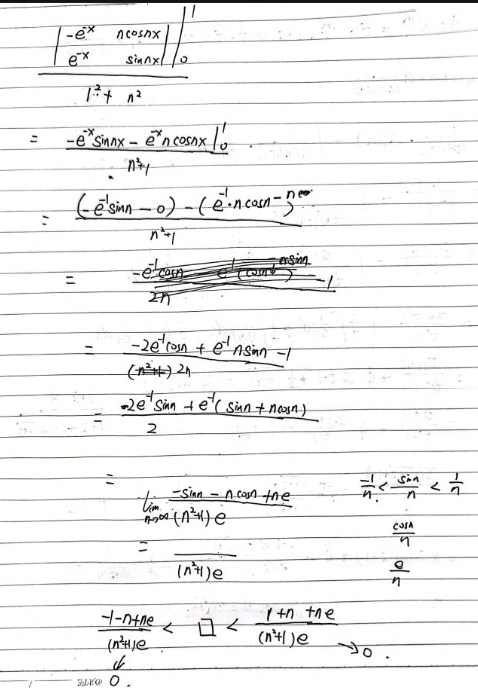 | -e^-x   ncosnx |
| e^-x   sinnx | |_0^1
1^2 + n^2
= -e^-x sinnx - e^-x ncosnx |_0^1
n^2+1
= (-e^-1 sinn - 0) - (e^-1·ncosn - n
n^2+1
= -1
2n
= -2e^-1 cosn + e^-1 nsinn - 1
(n^2+1) 2n
= -2e^-1 sinn + e^-1 (sinn + ncosn)
2
=
lim n→∞ -sinn - ncosn + ne
(n^2+1)e
-1/n < sinn/n < 1/n
cosn/n
e/n
=
(n^2+1)e
-1-n+ne/(n^2+1)e < □ < 1+n+ne/(n^2+1)e
↓ 0.
→ 0.